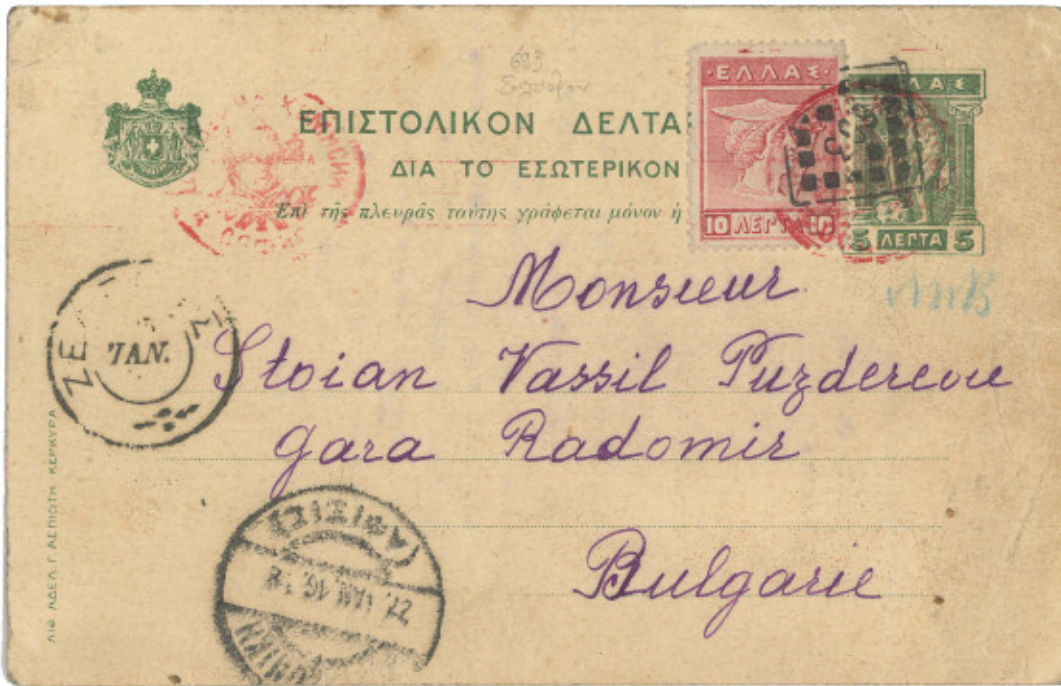 683
ΕΠΙΣΤΟΛΙΚΟΝ ΔΕΛΤΑ
ΔΙΑ ΤΟ ΕΣΩΤΕΡΙΚΟΝ
Ἐπὶ τῆς πλευρᾶς ταύτης γράφεται μόνον ἡ
ΕΛΛΑΣ
10 ΛΕΠΤΑ 10
ΛΑΣ
5 ΛΕΠΤΑ 5
Monsieur
Stoian Vassil Puzderevie
gara Radomir
Bulgarie
ΖΕ Σ
ΙΑΝ.
(ΑΦΙΞΙΣ)
22. ΙΑΝ. 16
ΛΙΘ. ΑΔΕΛ. Γ. ΑΣΠΙΩΤΗ ΚΕΡΚΥΡΑ